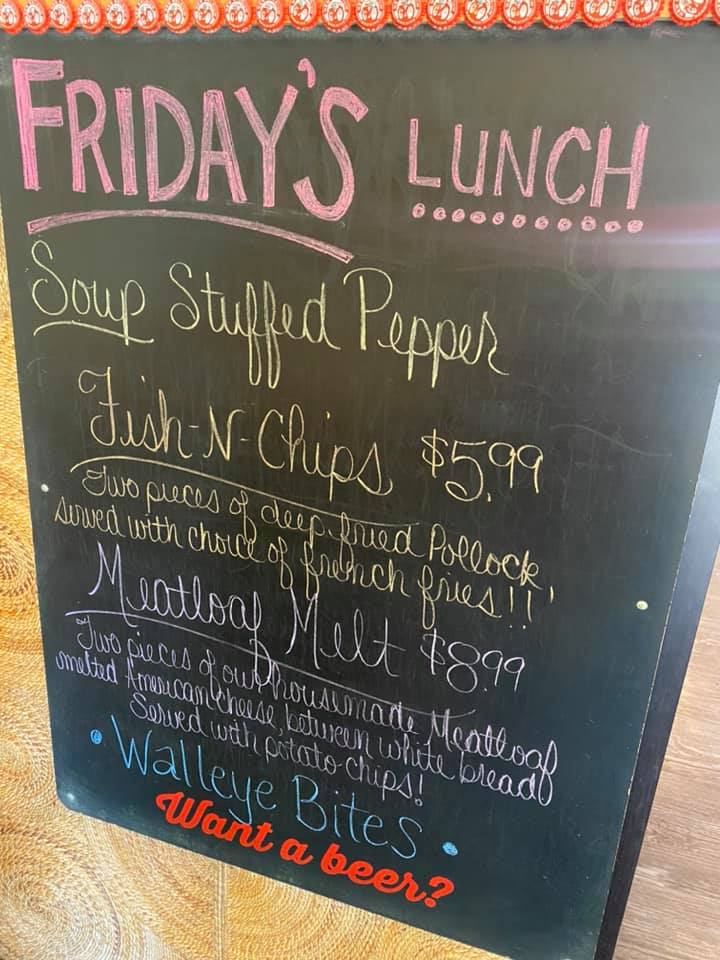 FRIDAY'S LUNCH
Soup Stuffed Pepper
Fish-N-Chips $5.99
Two pieces of deep fried Pollock,
served with choice of french fries!!!
Meatloaf Melt $8.99
Two pieces of our housemade Meatloaf
melted American cheese, between white bread
Served with potato chips!
• Walleye Bites •
Want a beer?